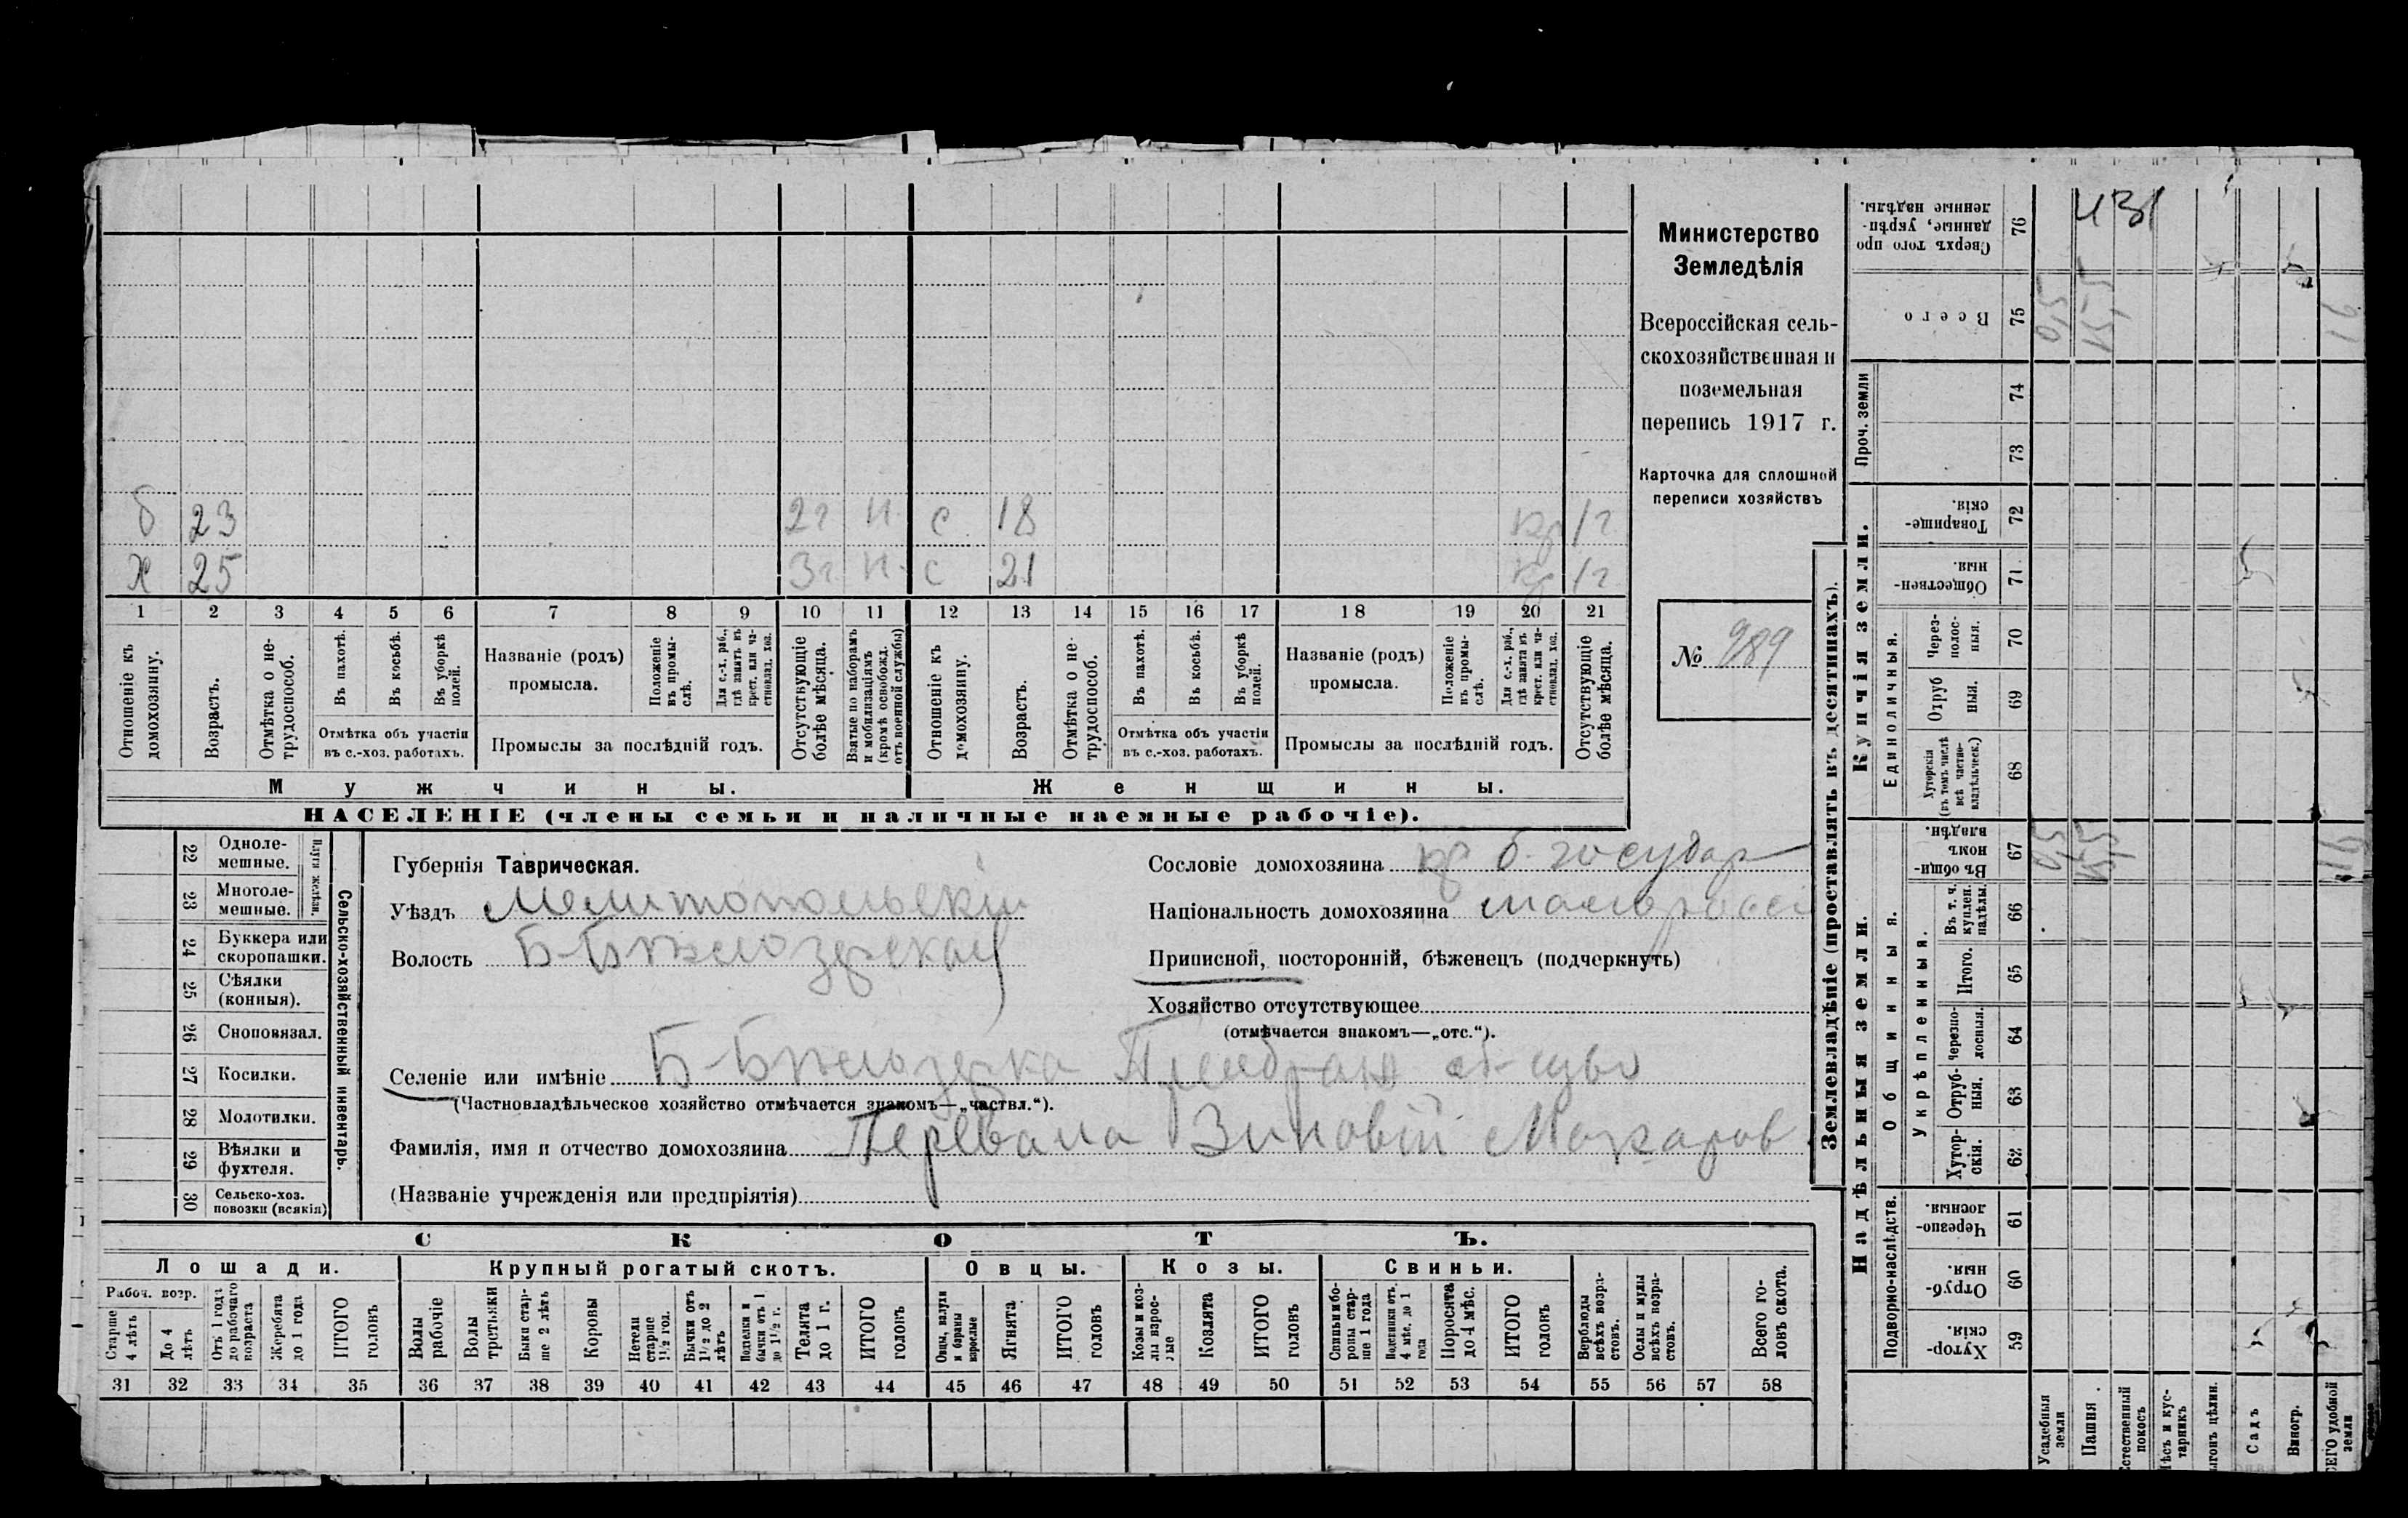 Министерство
Земледѣлія
Всероссійская сель-
скохозяйственная и
поземельная
перепись 1917 г.
Карточка для сплошной
переписи хозяйствъ
№ 989
б 23 2г н. с 18 кр 1г
х 25 3г н. с 21 кр 1г
1 2 3 4 5 6 7 8 9 10 11 12 13 14 15 16 17 18 19 20 21
Отношеніе къ домохозяину.
Возрастъ.
Отмѣтка о не-
трудоспособ.
Въ пахотѣ.
Въ косьбѣ.
Въ уборкѣ полей.
Отмѣтка объ участіи
въ с.-хоз. работахъ.
Названіе (родъ)
промысла.
Положеніе
въ промы-
слѣ.
Для с.-х. раб.,
гдѣ занятъ въ
крест. или ча-
стновлад. хоз.
Промыслы за послѣдній годъ.
Отсутствующіе
болѣе мѣсяца.
Взятые по наборамъ
и мобилизаціямъ
(кромѣ освобожд.
отъ военной службы)
Отношеніе къ
домохозяину.
Возрастъ.
Отмѣтка о не-
трудоспособ.
Въ пахотѣ.
Въ косьбѣ.
Въ уборкѣ
полей.
Отмѣтка объ участіи
въ с.-хоз. работахъ.
Названіе (родъ)
промысла.
Положеніе
въ промы-
слѣ.
Для с.-х. раб.,
гдѣ занята въ
крест. или ча-
стновлад. хоз.
Промыслы за послѣдній годъ.
Отсутствующіе
болѣе мѣсяца.
Мужчины. Женщины.
НАСЕЛЕНІЕ (члены семьи и наличные наемные рабочіе).
Сельско-хозяйственный инвентарь.
Плуги желѣзн.
22 Одноле-
мешные.
23 Многоле-
мешные.
24 Буккера или
скоропашки.
25 Сѣялки
(конныя).
26 Сноповязал.
27 Косилки.
28 Молотилки.
29 Вѣялки и
фухтеля.
30 Сельско-хоз.
повозки (всякія)
Губернія Таврическая.
Уѣздъ Мелитопольскій
Волость Б-Бѣлозерская
Сословіе домохозяина кр б. государ
Національность домохозяина малоросс
Приписной, посторонній, бѣженецъ (подчеркнуть)
Хозяйство отсутствующее
(отмѣчается знакомъ—„отс.“).
Селеніе или имѣніе Б-Бѣлозерка
(Частновладѣльческое хозяйство отмѣчается знакомъ—„частвл.“).
Фамилія, имя и отчество домохозяина Перевала Зиновій Макаров
(Названіе учрежденія или предпріятія)
СКОТЪ.
Лошади. Крупный рогатый скотъ. Овцы. Козы. Свиньи.
Рабоч. возр.
Старше
4 лѣтъ
До 4
лѣтъ
Отъ 1 года
до рабочаго
возраста
Жеребята
до 1 года
ИТОГО
головъ
Волы
рабочіе
Волы
третьяки
Быки стар-
ше 2 лѣтъ
Коровы
Нетели
старше
1½ год.
Бычки отъ
1½ до 2
лѣтъ
Подтелки и
бычки отъ 1
до 1½ г.
Телята
до 1 г.
ИТОГО
головъ
Овцы, валухи
и бараны
взрослые
Ягнята
ИТОГО
головъ
Козы и коз-
лы взрос-
лые
Козлята
ИТОГО
головъ
Свиньи и бо-
ровы стар-
ше 1 года
Подсвинки отъ
4 мѣс. до 1
года
Поросята
до 4 мѣс.
ИТОГО
головъ
Верблюды
всѣхъ возра-
стовъ.
Ослы и мулы
всѣхъ возра-
стовъ.
Всего го-
ловъ скота.
31 32 33 34 35 36 37 38 39 40 41 42 43 44 45 46 47 48 49 50 51 52 53 54 55 56 57 58
Землевладѣніе (проставлять въ десятинахъ).
Надѣльныя земли.
Купчія земли.
Проч. земли
Подворно-наслѣдств.
Общинныя.
Укрѣпленныя.
Единоличныя.
59 Хутор-
скія.
60 Отруб-
ныя.
61 Черезпо-
лосныя.
62 Хутор-
скія.
63 Отруб-
ныя.
64 Черезпо-
лосныя.
65 Итого.
66 Въ т. ч.
куплен.
надѣлы.
67 Въ общи-
номъ
владѣн.
68 Хуторскія
(въ томъ числѣ
всѣ частно-
владѣльческ.)
69 Отруб
ныя.
70 Через-
полос-
ныя.
71 Обществен-
ныя.
72 Товарище-
скія.
73
74
75 Всего
76 Сверхъ того про
данные, укрѣп-
ленные надѣлы.
431
Усадебныя
земли
Пашня.
Естественный
покосъ
Лѣсъ и кус-
тарникъ
Выгонъ цѣлин.
Садъ
Виногр.
ВСЕГО удобной
земли